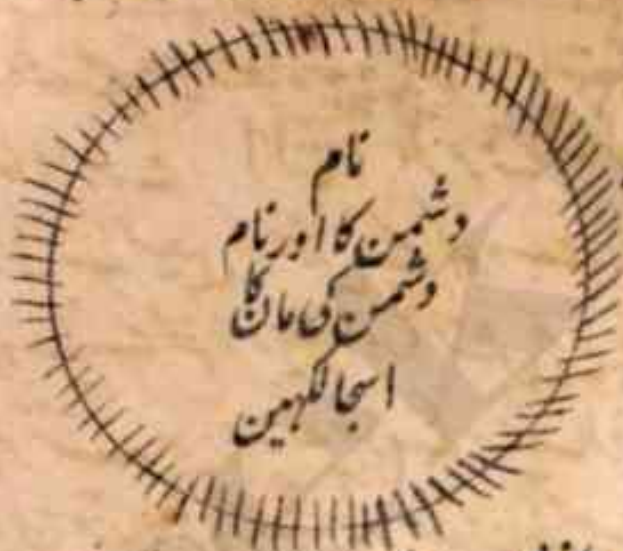 نام
دشمن کا اور نام
دشمن کی ماں کا
اسجا لکہین